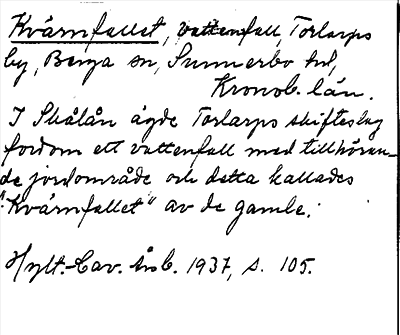 Kvärnfallet, vattenfall, Torlarps
by, Berga sn, Sunnerbo hd,
Kronob. län.
I Skålån ägde Torlarps skifteslag
fordom ett vattenfall med tillhöran-
de jordområde och detta kallades
"Kvärnfallet" av de gamle.
Hylt.-Cav. årsb. 1937, s. 105.